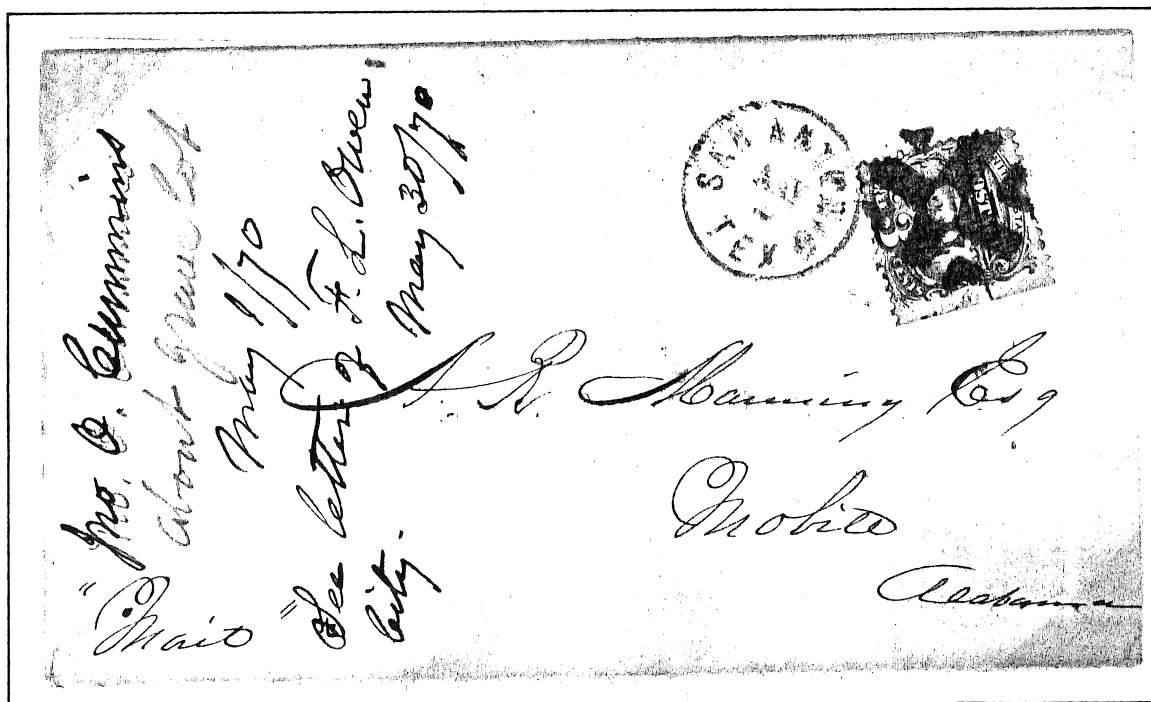 Jno. O. Cummins
about grave lot
May 1/70
See letter of F. L. Owen
City. May 30/70
SAN ANTONIO TEX
3
A. R. Manning Esq
Mobile
Alabama
"Mail"